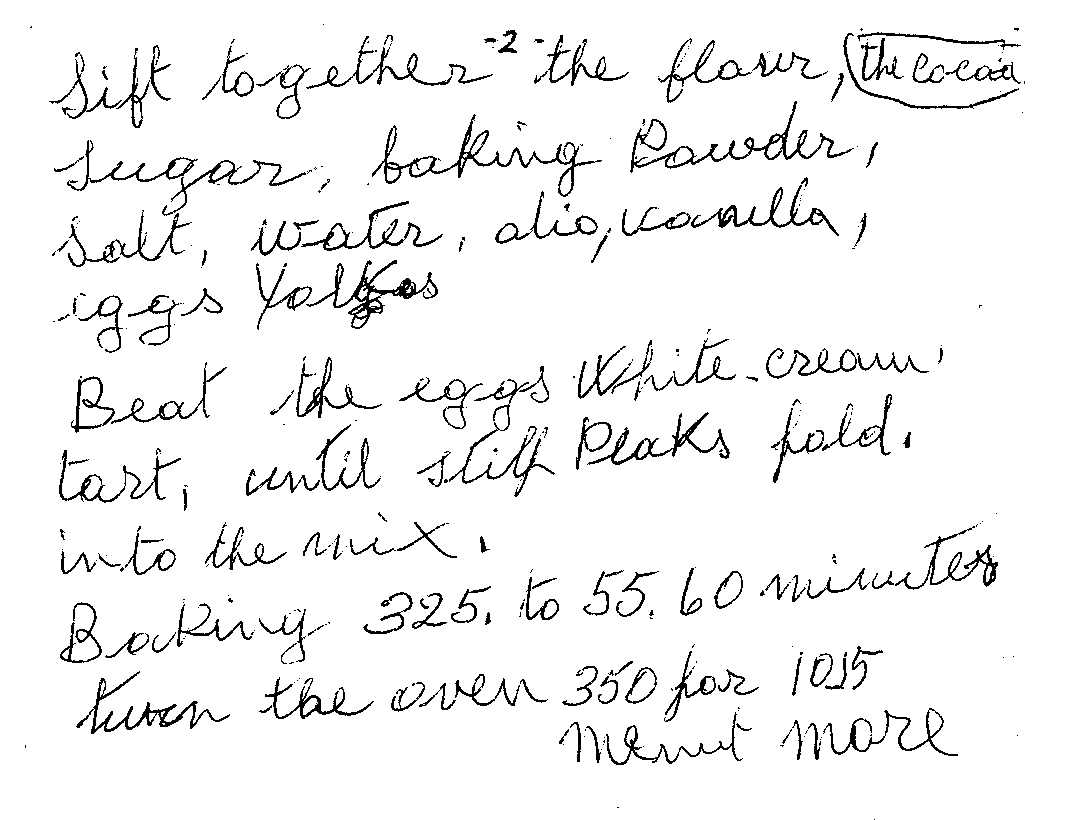 -2-
Sift together the flour, the cocoa
sugar, baking Powder,
salt, water, olio, vanilla,
eggs Yolkos
Beat the eggs White-cream
tart, until stiff Peaks fold.
into the mix.
Baking 325. to 55. 60 minutes
turn the oven 350 for 10 15
Menut more